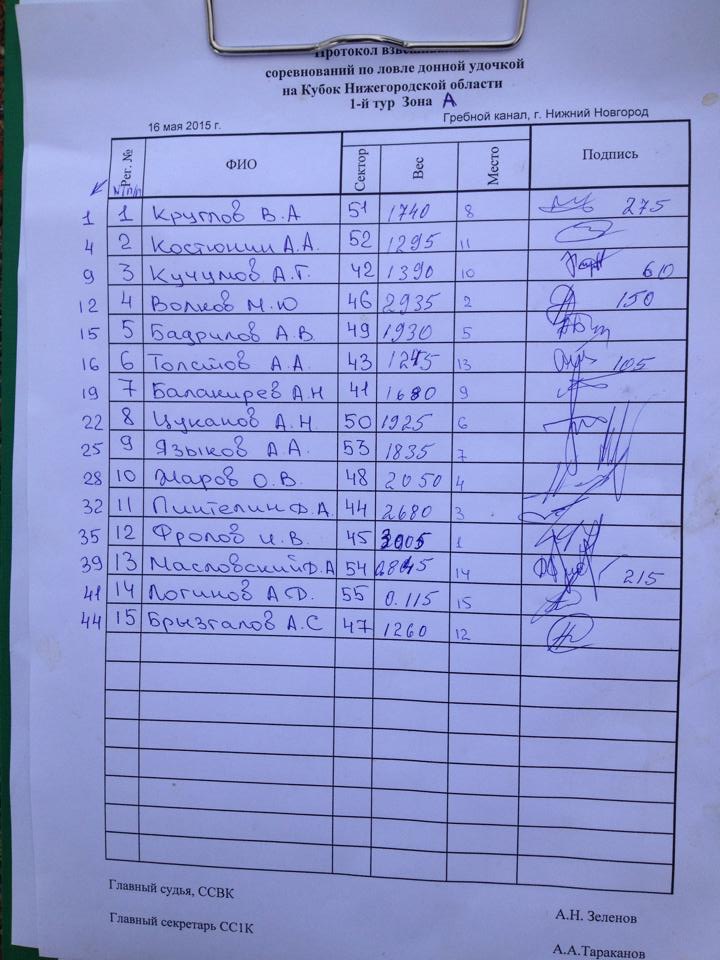 Протокол взвешивания
соревнований по ловле донной удочкой
на Кубок Нижегородской области
1-й тур Зона А
16 мая 2015 г. Гребной канал, г. Нижний Новгород
№ п/п Рег. № ФИО Сектор Вес Место Подпись
1 1 Круглов В.А 51 1740 8 275
4 2 Костюнин А.А. 52 1295 11
9 3 Кучумов А.Г. 42 1390 10 60
12 4 Волков М.Ю 46 2935 2 150
15 5 Бадрилов А.В. 49 1930 5
16 6 Толстов А.А. 43 1245 13 105
19 7 Балакирев А.Н 41 1680 9
22 8 Цуканов А.Н. 50 1925 6
25 9 Языков А.А. 53 1835 7
28 10 Жаров О.В. 48 2050 4
32 11 Пиителин Ф.А. 44 2680 3
35 12 Фролов И.В. 45 3005 1
39 13 Масловский Ф.А 54 14 215
41 14 Логинов А.Ф. 55 0.115 15
44 15 Брызгалов А.С 47 1260 12
Главный судья, ССВК А.Н. Зеленов
Главный секретарь СС1К А.А.Тараканов